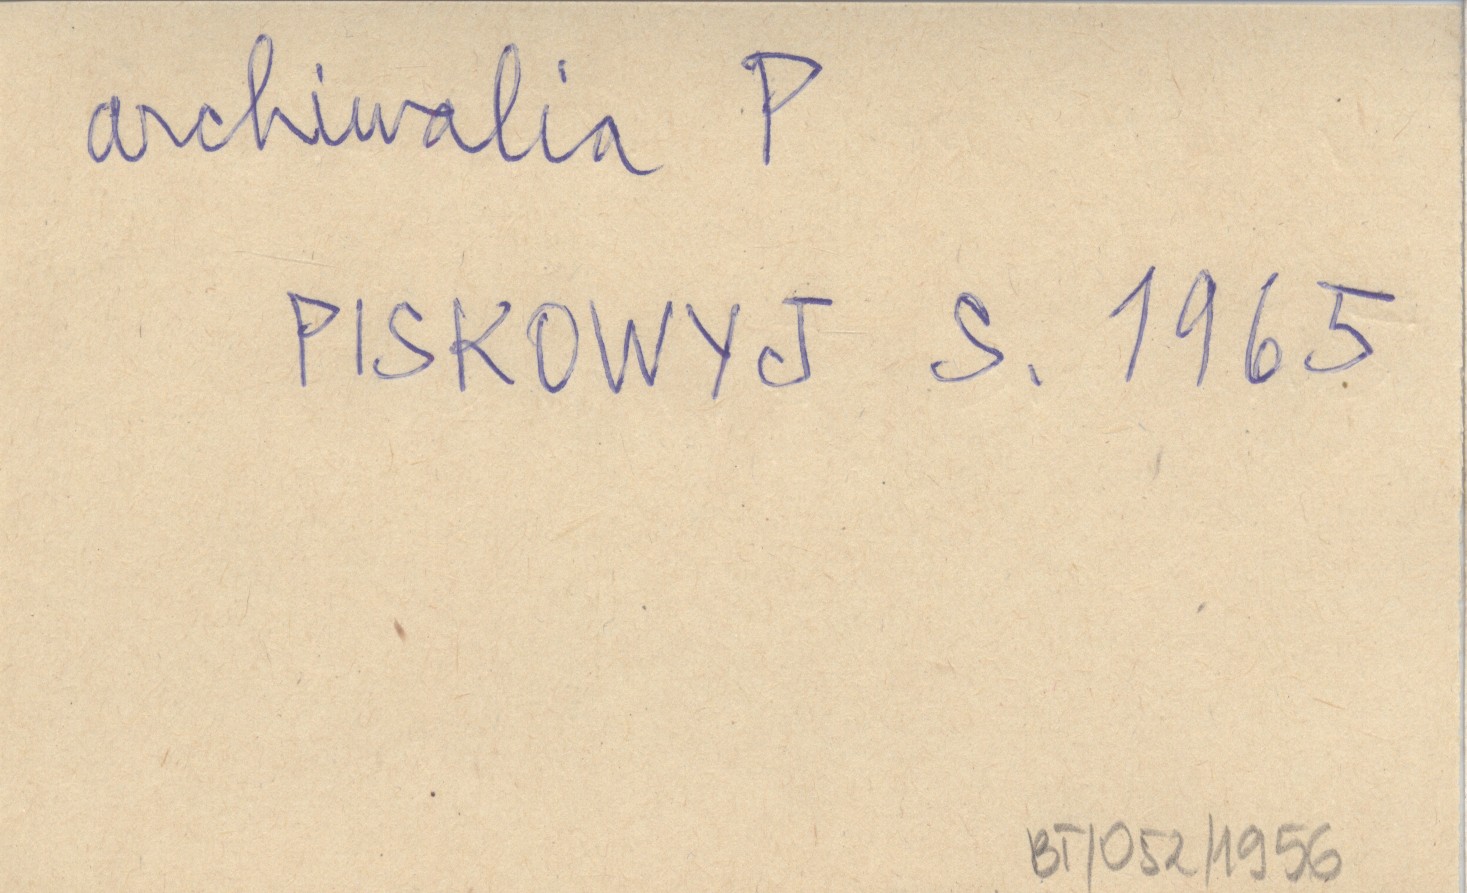 archiwalia P
PISKOWYJ S. 1965
BT/052/1956